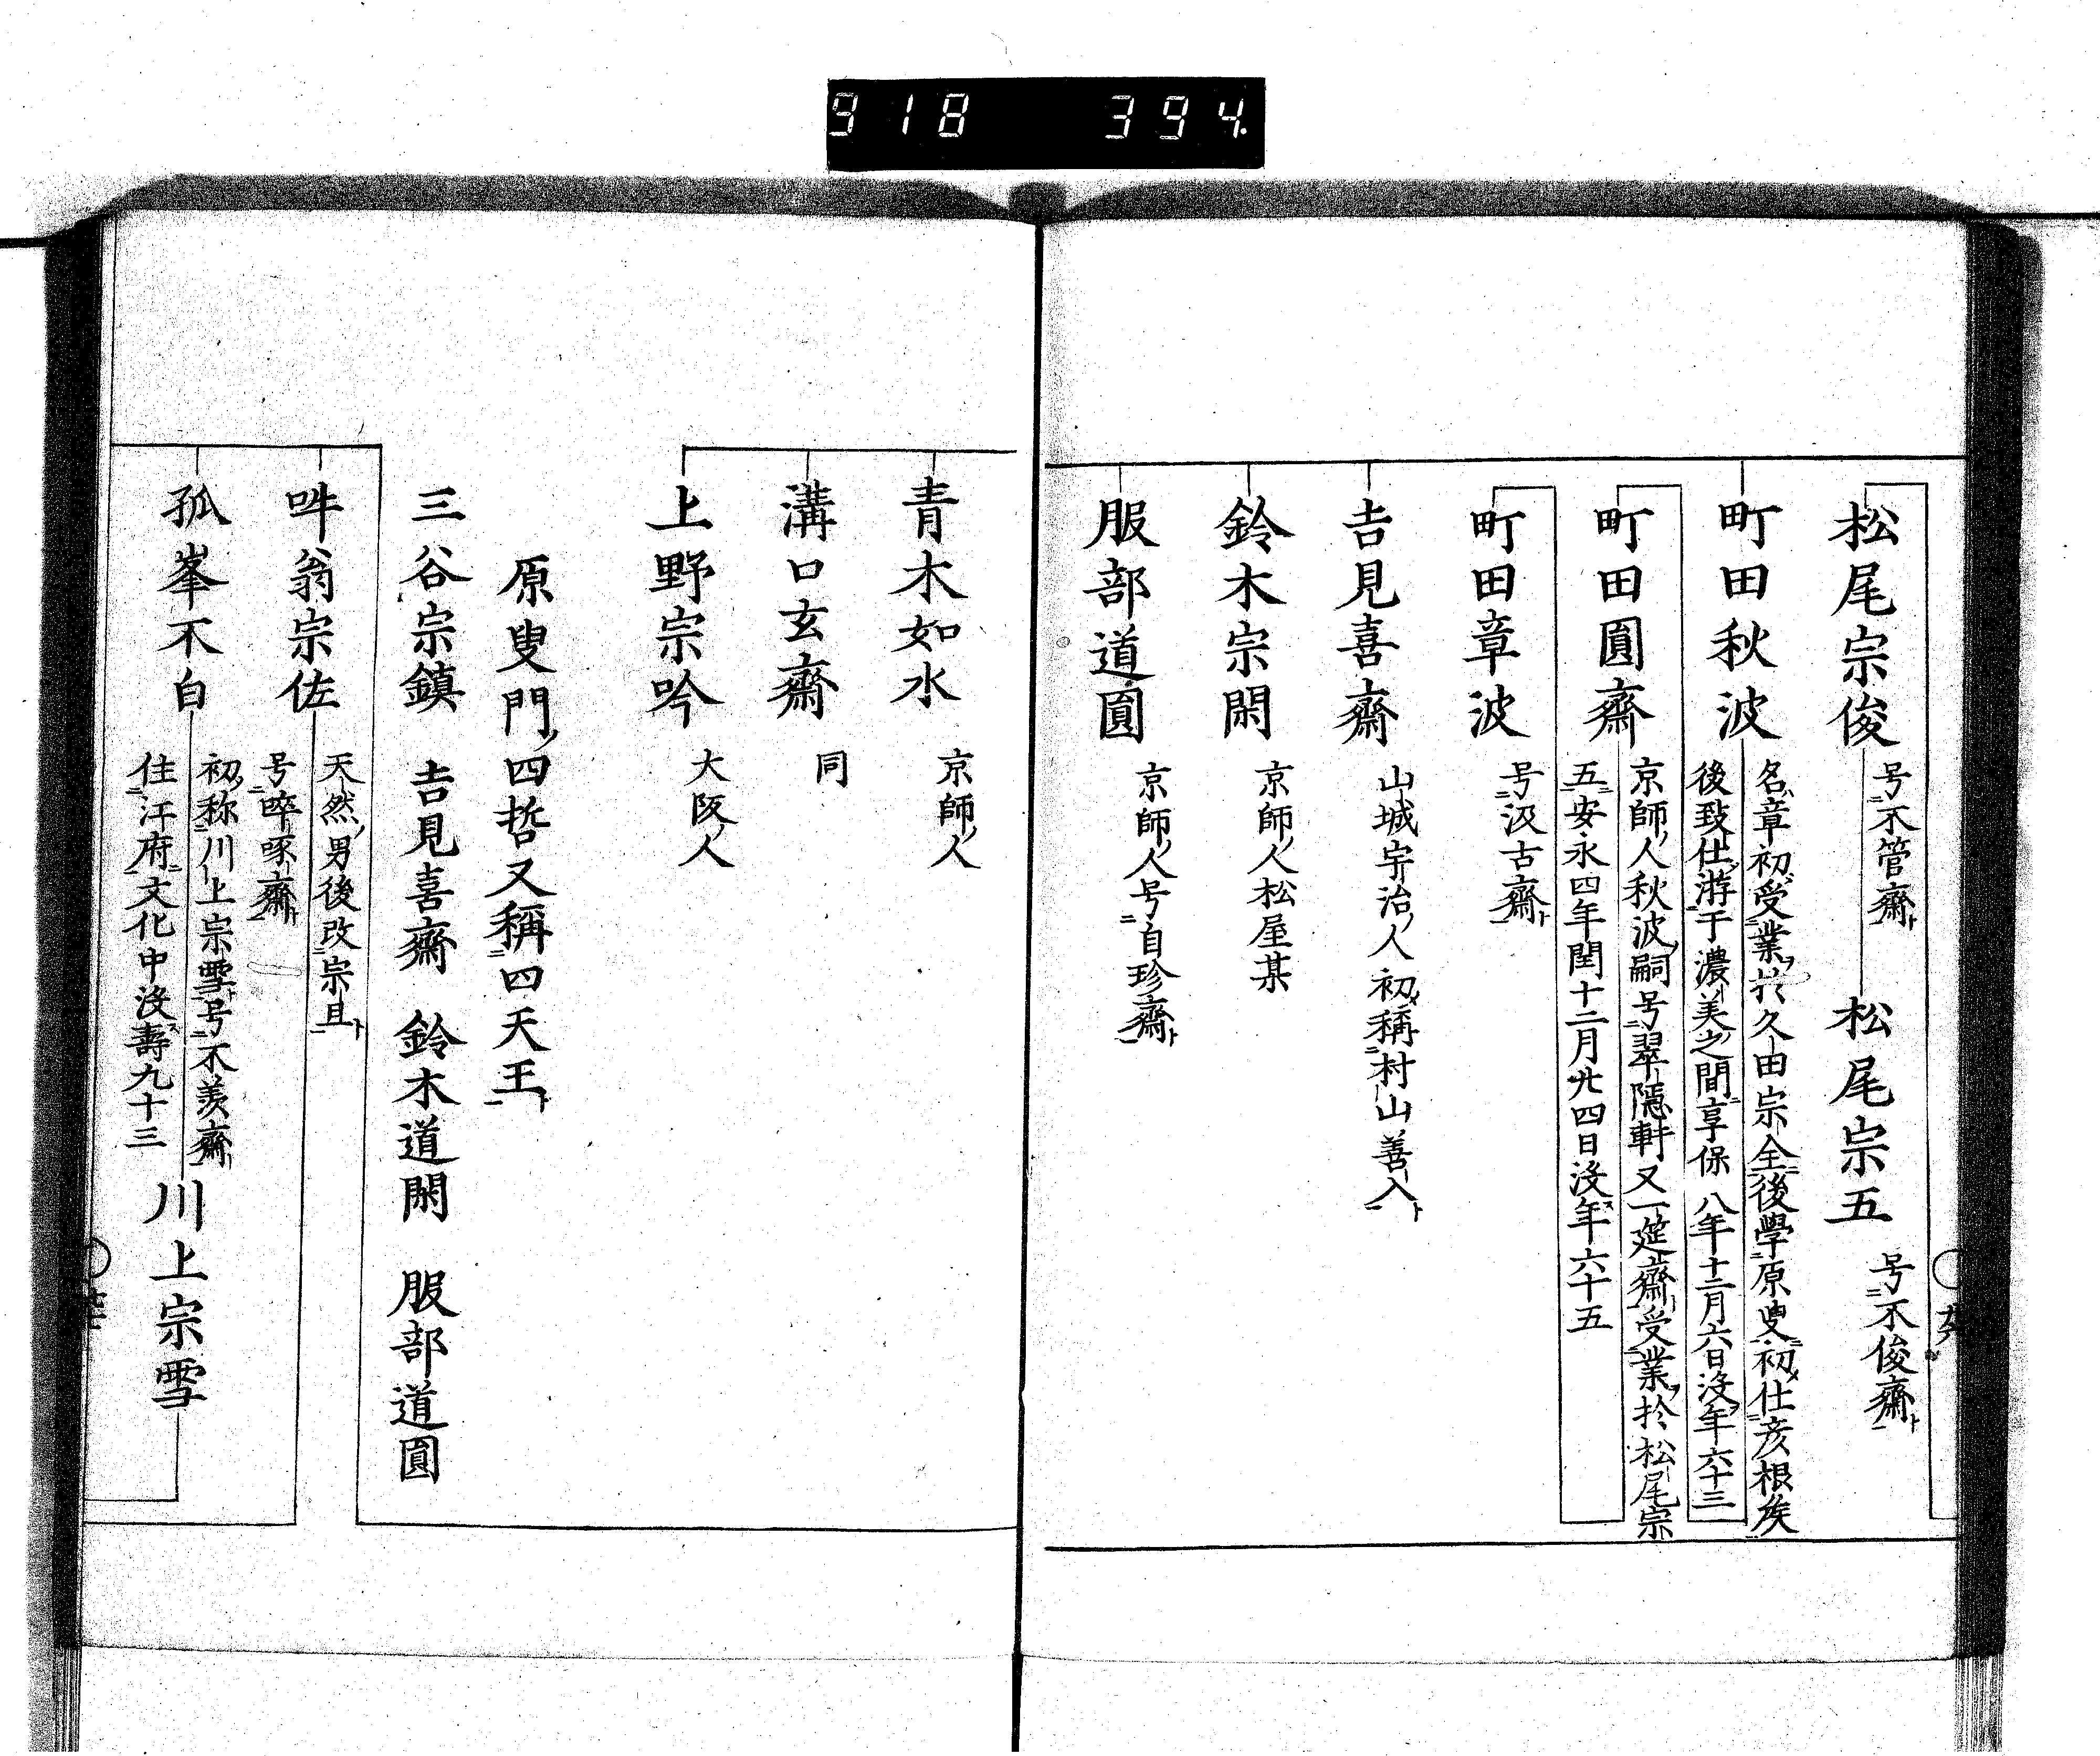 918 394
松尾宗俊 号不管齋ト 松尾宗五 号不俊齋ト
町田秋波 名ハ章初メ受業ヲ於久田宗全ニ後學原叟ニ初メ仕彦根矦ニ
後致仕游于濃美之間ニ享保八年十二月六日没年六十三
町田圓齋 京師ノ人秋波ノ嗣号翠隱軒又一莚齋ト受業ヲ於松尾宗
五ニ安永四年閏十二月廿四日没ス年六十五
町田章波 号汲古齋ト
吉見喜齋 山城宇治ノ人初メ稱村山善入ト
鈴木宗閑 京師ノ人松屋某
服部道圓 京師ノ人号自珍齋ト
青木如水 京師ノ人
溝口玄齋 同
上野宗吟 大阪ノ人
原叟門ノ四哲又稱四天王ト
三谷宗鎮 吉見喜齋 鈴木道閑 服部道圓
吽翁宗佐 天然ノ男後改宗且ト
号啐啄齋ト
孤峯不白 初メ称川上宗雪ト号不羨齋ト
住江府ニ文化中没ス壽九十三
川上宗雪